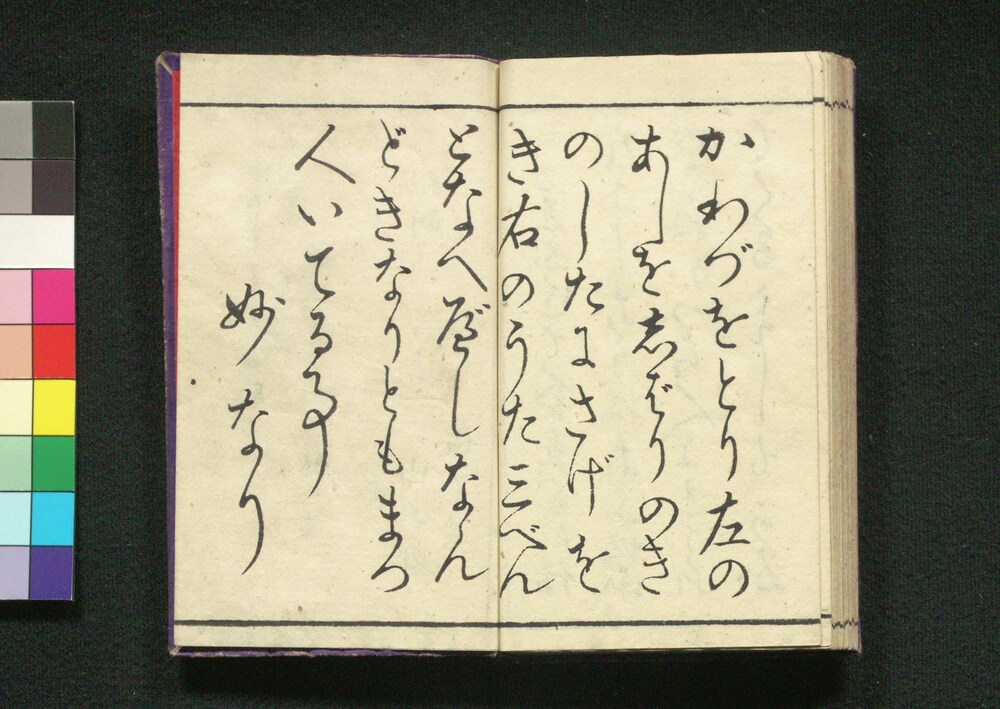 かわづをとり左の
あしを志ばりのき
のしたにさげを
き右のうた三べん
となへべしなん
どきなりともまつ
人いてる事
妙なり